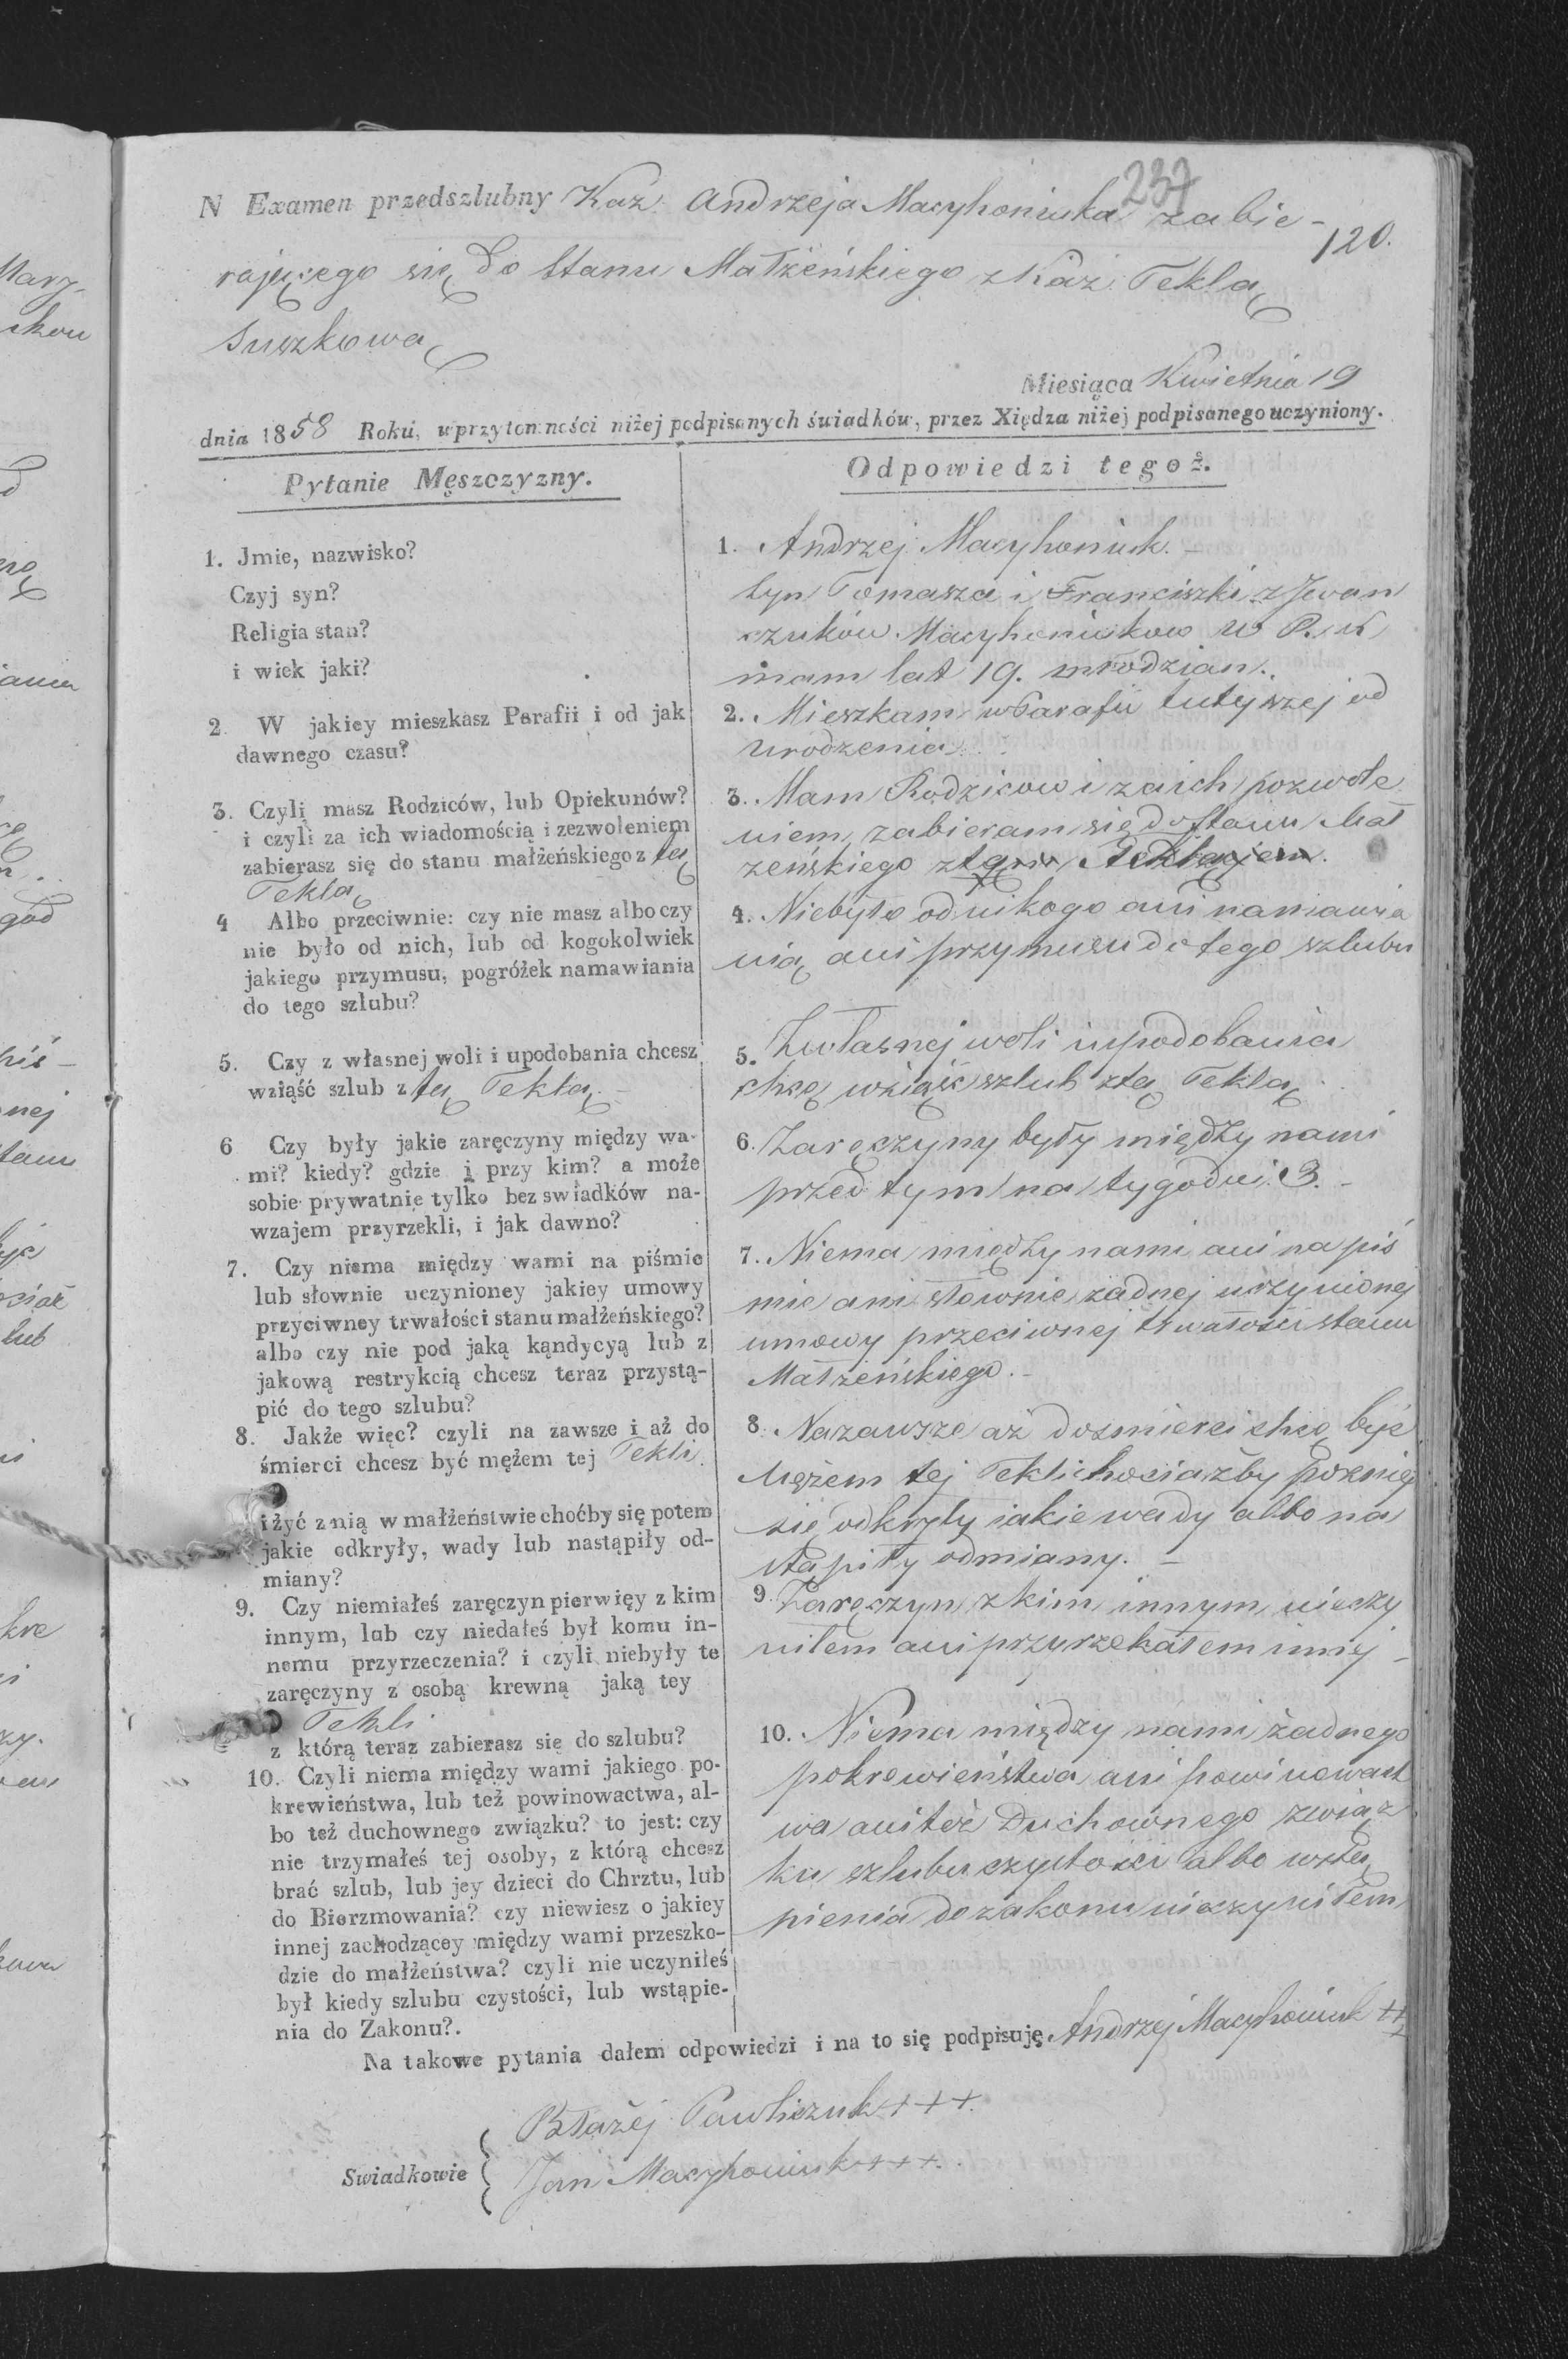 237
N Examen przedszlubny Kaz. Andrzeja Macyhoniuka zabie-
120.
rającego się do Stanu Małżeńskiego z Kaz. Teklą
Suszkową
Miesiąca Kwietnia 19
dnia 1858 Roku, w przytomności niżej podpisanych świadków, przez Xiędza niżej podpisanego uczyniony.
Pytanie Męszczyzny.
1. Jmie, nazwisko?
Czyj syn?
Religia stan?
i wiek jaki?
2. W jakiey mieszkasz Parafii i od jak
dawnego czasu?
3. Czyli masz Rodziców, lub Opiekunów?
i czyli za ich wiadomością i zezwoleniem
zabierasz się do stanu małżeńskiego z tą
Teklą
4 Albo przeciwnie: czy nie masz albo czy
nie było od nich, lub od kogokolwiek
jakiego przymusu, pogróżek namawiania
do tego szlubu?
5. Czy z własnej woli i upodobania chcesz
wziąść szlub z tą Teklą.
6 Czy były jakie zaręczyny między wa-
mi? kiedy? gdzie i przy kim? a może
sobie prywatnie tylko bez swiadków na-
wzajem przyrzekli, i jak dawno?
7. Czy niema między wami na piśmie
lub słownie uczynioney jakiey umowy
przyciwney trwałości stanu małżeńskiego?
albo czy nie pod jaką kądycyą lub z
jakową restrykcią chcesz teraz przystą-
pić do tego szlubu?
8. Jakże więc? czyli na zawsze i aż do
śmierci chcesz być mężem tej Tekli.
i żyć z nią w małżeństwie choćby się potem
jakie odkryły, wady lub nastąpiły od-
miany?
9. Czy niemiałeś zaręczyn pierwięy z kim
innym, lub czy niedałeś był komu in-
nemu przyrzeczenia? i czyli niebyły te
zaręczyny z osobą krewną jaką tey
Tekli
z którą teraz zabierasz się do szlubu?
10. Czyli niema między wami jakiego po-
krewieństwa, lub też powinowactwa, al-
bo też duchownego związku? to jest: czy
nie trzymałeś tej osoby, z którą chcesz
brać szlub, lub jey dzieci do Chrztu, lub
do Bierzmowania? czy niewiesz o jakiey
innej zachodzącey między wami przeszko-
dzie do małżeństwa? czyli nie uczyniłeś
był kiedy szlubu czystości, lub wstąpie-
nia do Zakonu?.
Odpowiedzi tegoż.
1. Andrzej Macyhoniuk.-
Syn Tomasza i Franciszki z Jwan
czuków Macyhoniukow W P. K
mam lat 19. młodzian.
2. Mieszkam w Parafii tutejszej od
urodzenia.
3. Mam Rodzicow i za ich pozwole
niem zabieram się do stanu Mał
żeńskiego z tą Teklą
4. Niebyło od nikogo ani namawia
nia ani przymusu do tego szlubu
5. Z własnej woli i upodobania
chcę wziąść szlub z tą Teklą.
6. Zaręczyny były między nami
przed tym na tygodni 3.-
7. Niema między nami ani na piś
mie ani słownie żadnej uczynionej
umowy przeciwnej trwałości stanu
Małżeńskiego.-
8. Na zawsze aż do smierci chcę być
Mężem tej Tekli chociażby pozniej
się odkryły iakie wady albo na
stąpiły odmiany.-
9. Zaręczyn z kim innym nieczy
niłem ani przyrzekałem innej-
10. Niema między nami żadnego
pokrewieństwa ani powinowact
wa ani też Duchownego związ
ku szlubu czystości albo wstą
pienia do zakonu nieczyniłem
Na takowe pytania dałem odpowiedzi i na to się podpisuję Andrzej Macyhoniuk +++
Swiadkowie
Błażej Pawliczuk +++
Jan Macyhoniuk +++.